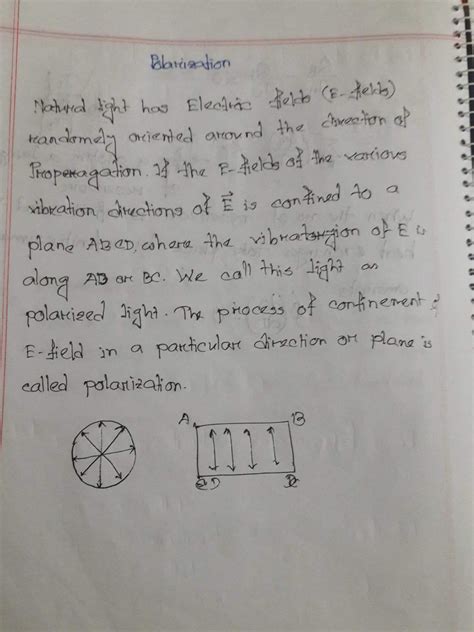 Polarization
Natural light has Electric fields (E-fields)
randomely oriented around the direction of
Properagation. If the E-fields of the various
vibration directions of E⃗ is confined to a
plane ABCD, where the vibration of E is
along AD or BC. We call this light as
polarized light. The process of confinement of
E-field in a particular direction or plane is
called polarization.
A B
D